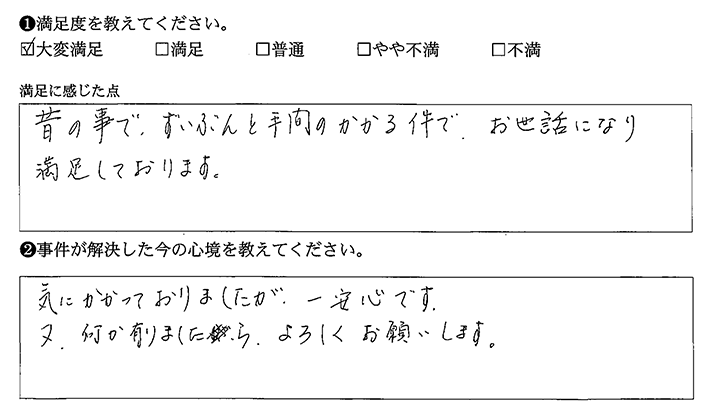 ❶満足度を教えてください。
☑大変満足 □満足 □普通 □やや不満 □不満
満足に感じた点
昔の事で、ずいぶんと手間のかかる件で、お世話になり
満足しております。
❷事件が解決した今の心境を教えてください。
気にかかっておりましたが、一安心です。
又、何か有りましたら、よろしくお願いします。